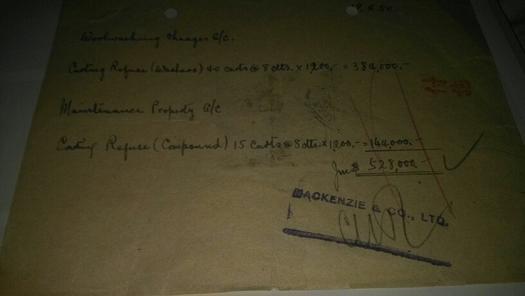 Woolwashing Charges A/C.
Carting Refuse (Washers) 40 carts @ 8 dtts. x 1200.- = 384,000.-
Maintenance Property A/C
Carting Refuse (Compound) 15 Carts @ 8 dtts. x 1200.- = 144,000.-
$ 528,000.-
MACKENZIE & CO., LTD.